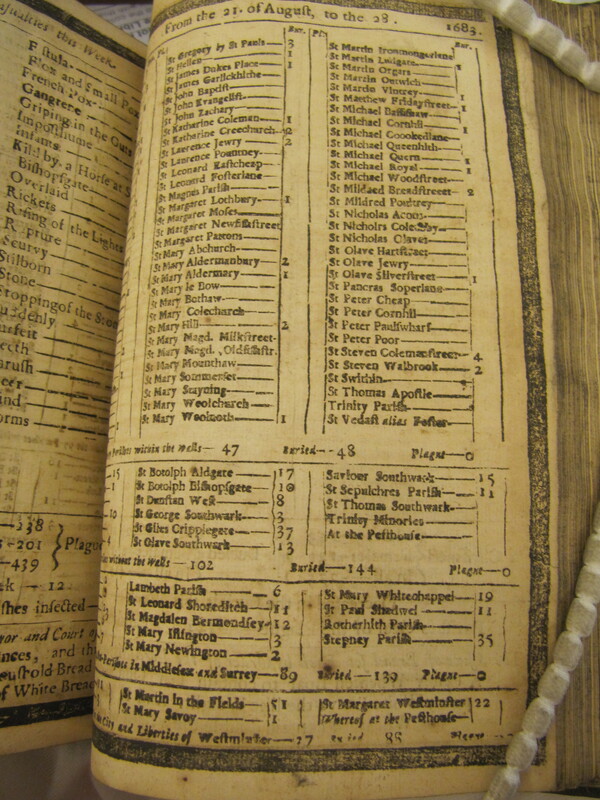 sualties this Week.
Fistula
Flox and Small Pox
French Pox
Gangrene
Griping in the Guts
Impostume
Infants
Kill'd by a Horse at
Bishopsgate
Overlaid
Rickets
Rising of the Lights
Rupture
Scurvy
Stilborn
Stone
Stopping of the Sto
uddenly
urfeit
eeth
hrush
orms
238
201
439
Plague
ek 12
shes infected
or and Court of
nces, and th
ushold Bread
of White Bread
From the 21. of August, to the 28. 1683.
Bur. Pl.
St Gregory by St Pauls 3
St Hellen 1
St James Dukes Place 1
St James Garlickhithe
St John Baptist
St John Evangelist
St John Zachary
St Katharine Coleman 1
St Katharine Creechurch 2
St Lawrence Jewry 2
St Lawrence Pountney
St Leonard Eastcheap
St Leonard Fosterlane
St Magnus Parish
St Margaret Lothbury 1
St Margaret Moses
St Margaret Newfishstreet
St Margaret Pattons
St Mary Abchurch
St Mary Aldermanbury 2
St Mary Aldermary 1
St Mary le Bow
St Mary Bothaw
St Mary Colechurch
St Mary Hill 2
St Mary Magd. Milkstreet
St Mary Magd. Oldfishstr.
St Mary Mounthaw
St Mary Sommerset
St Mary Stayning
St Mary Woolchurch
St Mary Woolnoth 1
Bur.
St Martin Ironmongerlane
St Martin Ludgate
St Martin Orgars 1
St Martin Outwich
St Martin Vintrey 1
St Matthew Fridaystreet 1
St Michael Bassishaw
St Michael Cornhil 1
St Michael Crookedlane
St Michael Queenhith
St Michael Quern 1
St Michael Royal 1
St Michael Woodstreet
St Mildred Breadstreet 2
St Mildred Poultrey
St Nicholas Acons
St Nicholas Coleabby
St Nicholas Olaves
St Olave Hartstreet
St Olave Jewry
St Olave Silverstreet 1
St Pancras Soperlane
St Peter Cheap
St Peter Cornhil
St Peter Paulswharf
St Peter Poor
St Steven Colemanstreet 4
St Steven Walbrook 2
St Swithin
St Thomas Apostle
Trinity Parish
St Vedast alias Foster
Parishes within the Walls 47 Buried 48 Plague 0
St Botolph Aldgate 17
St Botolph Bishopsgate 10
St Dunstan West 8
St George Southwark 3
St Giles Cripplegate 37
St Olave Southwark 13
Saviour Southwark 15
St Sepulchres Parish 11
St Thomas Southwark
Trinity Minories
At the Pesthouse
without the Walls 102 Buried 144 Plague 0
Lambeth Parish 6
St Leonard Shoreditch 11
St Magdalen Bermondsey 12
St Mary Islington 3
St Mary Newington 2
St Mary Whitechappel 19
St Paul Shadwel 11
Rotherhith Parish
Stepney Parish 35
Parishes in Middlesex and Surrey 89 Buried 139 Plague 0
St Martin in the Fields 51
St Mary Savoy 1
St Margaret Westminster 22
Whereof at the Pesthouse
City and Liberties of Westminster